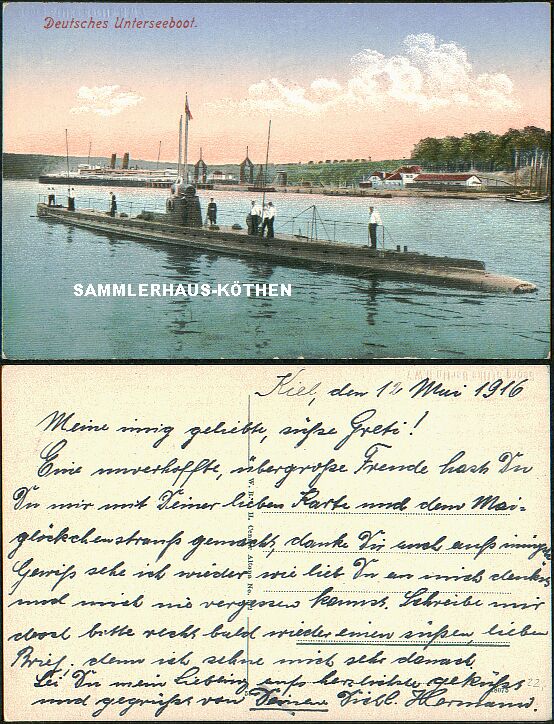 Deutsches Unterseeboot.
SAMMLERHAUS-KÖTHEN
Kiel, den 12 Mai 1916
Meine innig geliebte, süße Greti!
Eine unverhoffte, übergroße Freude hast Du
Du mir mit Deiner lieben Karte und dem Mai=
glöckchenstrauß gemacht, danke Dir auch aufs innigste
Gewiß sehe ich wieder wie lieb Du an mich denkst
und mich nie vergessen kannst. Schreibe mir
doch bitte recht bald wieder einen süßen, lieben
Brief, denn ich sehne mich sehr danach.
Sei Du mein Liebling aufs herzlichste geküßt
und gegrüßt von Deinem Hermann.
22,-